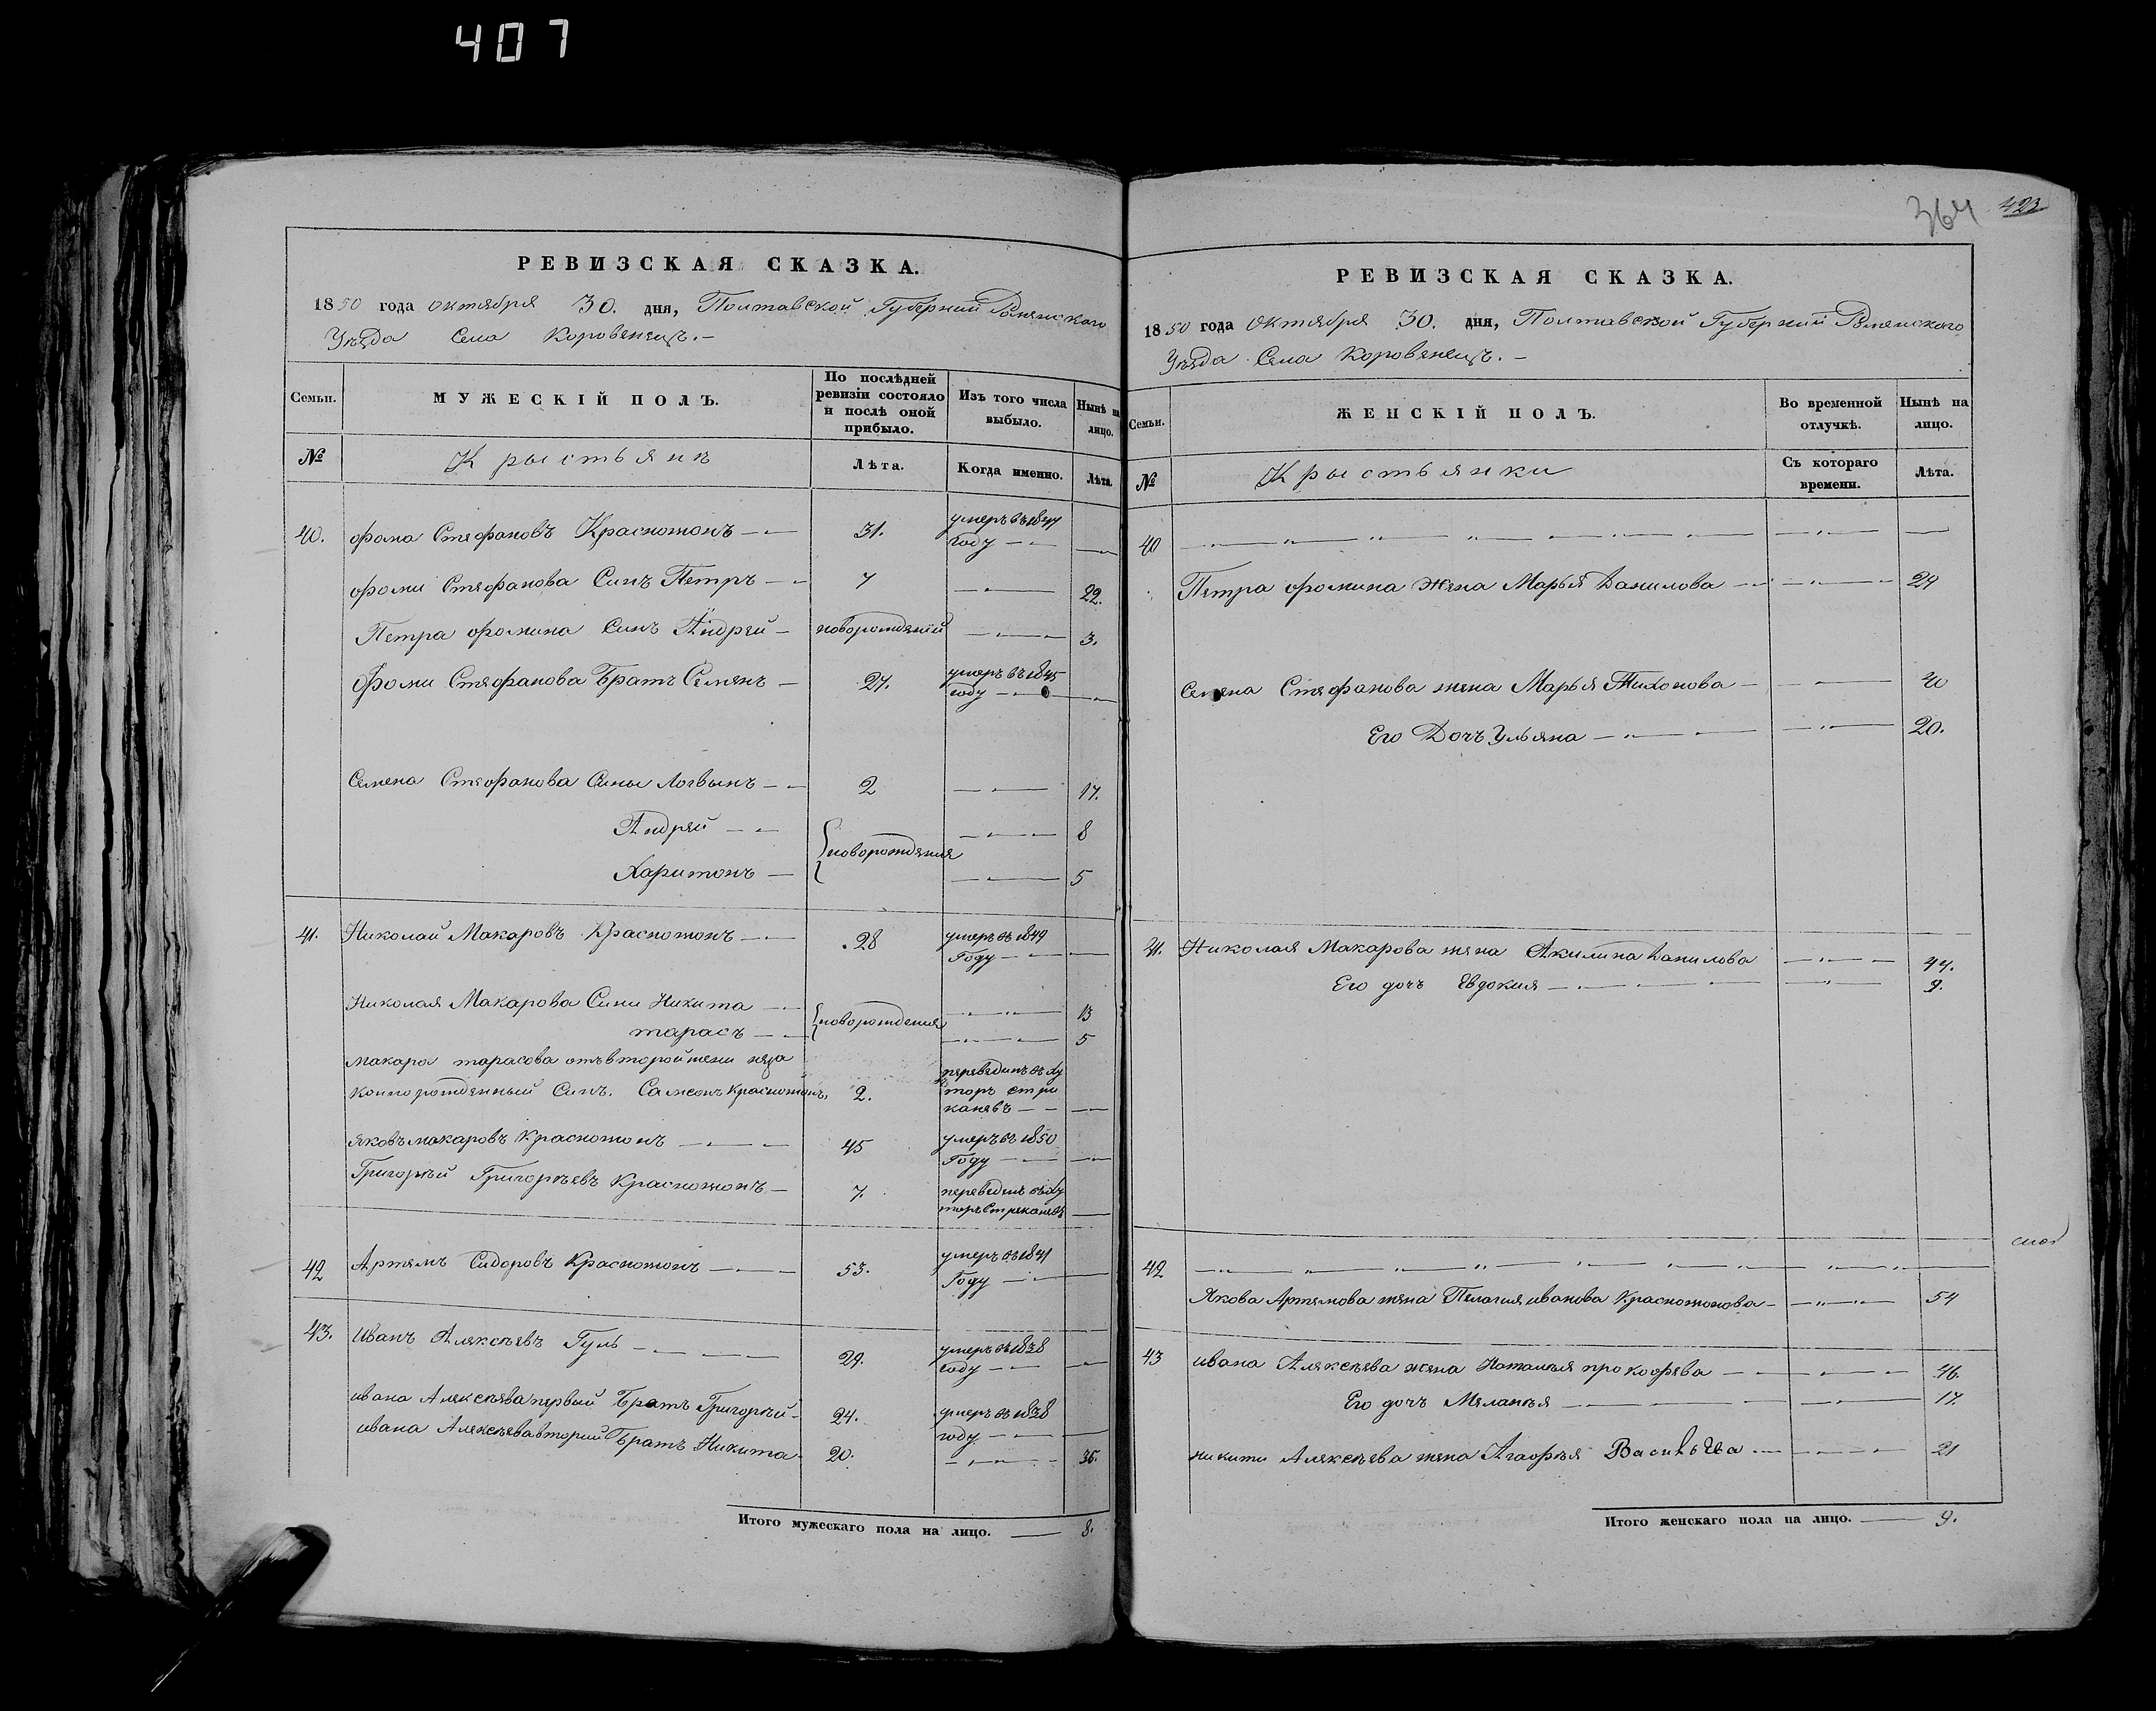 407
РЕВИЗСКАЯ СКАЗКА.
1850 года октября 30. дня, Полтавской Губернии Роменского
Уезда Села Коровенецъ.-
Семьи. МУЖЕСКІЙ ПОЛЪ. По послѣдней ревизіи состояло и послѣ оной прибыло. Изъ того числа выбыло. Нынѣ на лицо.
№ Крыстьянъ Лѣта. Когда именно. Лѣта.
40. фома Стефановъ Красножонъ 31. умеръ въ 1844 году
фоми Стефанова Синъ Петръ 7 22.
Петра фомина Синъ Андрей новорожденій 3.
Фоми Стефанова Братъ Семенъ 27. умеръ въ 1845 году
Семена Стефанова Сины Логвынъ 2 17.
Андрей 8
новорожденія
Харитонъ 5
41. Николай Макаровъ Красножонъ 28 умеръ въ 1849 Году
Николая Макарова Сини Никита 13
новорожденія
тарасъ 5
Макара тарасова отъ второй жени неза
коннорожденный Синъ. Самсонъ Красножонъ 2. перевединъ въ ху торъ стри каневъ
яковъ макаровъ Красножонъ 45 умеръ въ 1850 Году
Григорѣй Григорѣевъ Красножонъ 7. переведенъ въ ху торъ Стрека
42 Артемъ Сидоровъ Красножонъ 53. умеръ въ 1841 Году
43. Иванъ Алексѣевъ Гуль 29. умеръ въ 1838 году
ивана Алексѣева первый Братъ Григорѣй 24. умеръ въ 1838 году
ивана Алексѣева вторий Братъ Никита 20. 36.
Итого мужескаго пола на лицо. 8.
364 423
РЕВИЗСКАЯ СКАЗКА.
1850 года Октября 30. дня, Полтавской Губерніи Роменского
Уезда Села Коровенецъ.-
Семьи. ЖЕНСКІЙ ПОЛЪ. Во временной отлучкѣ. Нынѣ на лицо.
№ Крыстьянки Съ котораго времени. Лѣта.
40
Петра фомина жена Марья Данилова 24
Семена Стефанова жена Марья Тихонова 40
Его Дочъ Ульяна 20.
41. Николая Макарова жена Акилина Данилова 44.
Его дочъ Евдокия 9.
42
Якова Артемова жена Пелагия иванова Красножонова 54
43 ивана Алексѣева жена Наталѣя прокофева 46.
Его дочъ Меланѣя 17.
никити Алексѣева жена Агафѣя Васильева 21
Итого женскаго пола на лицо. 9.